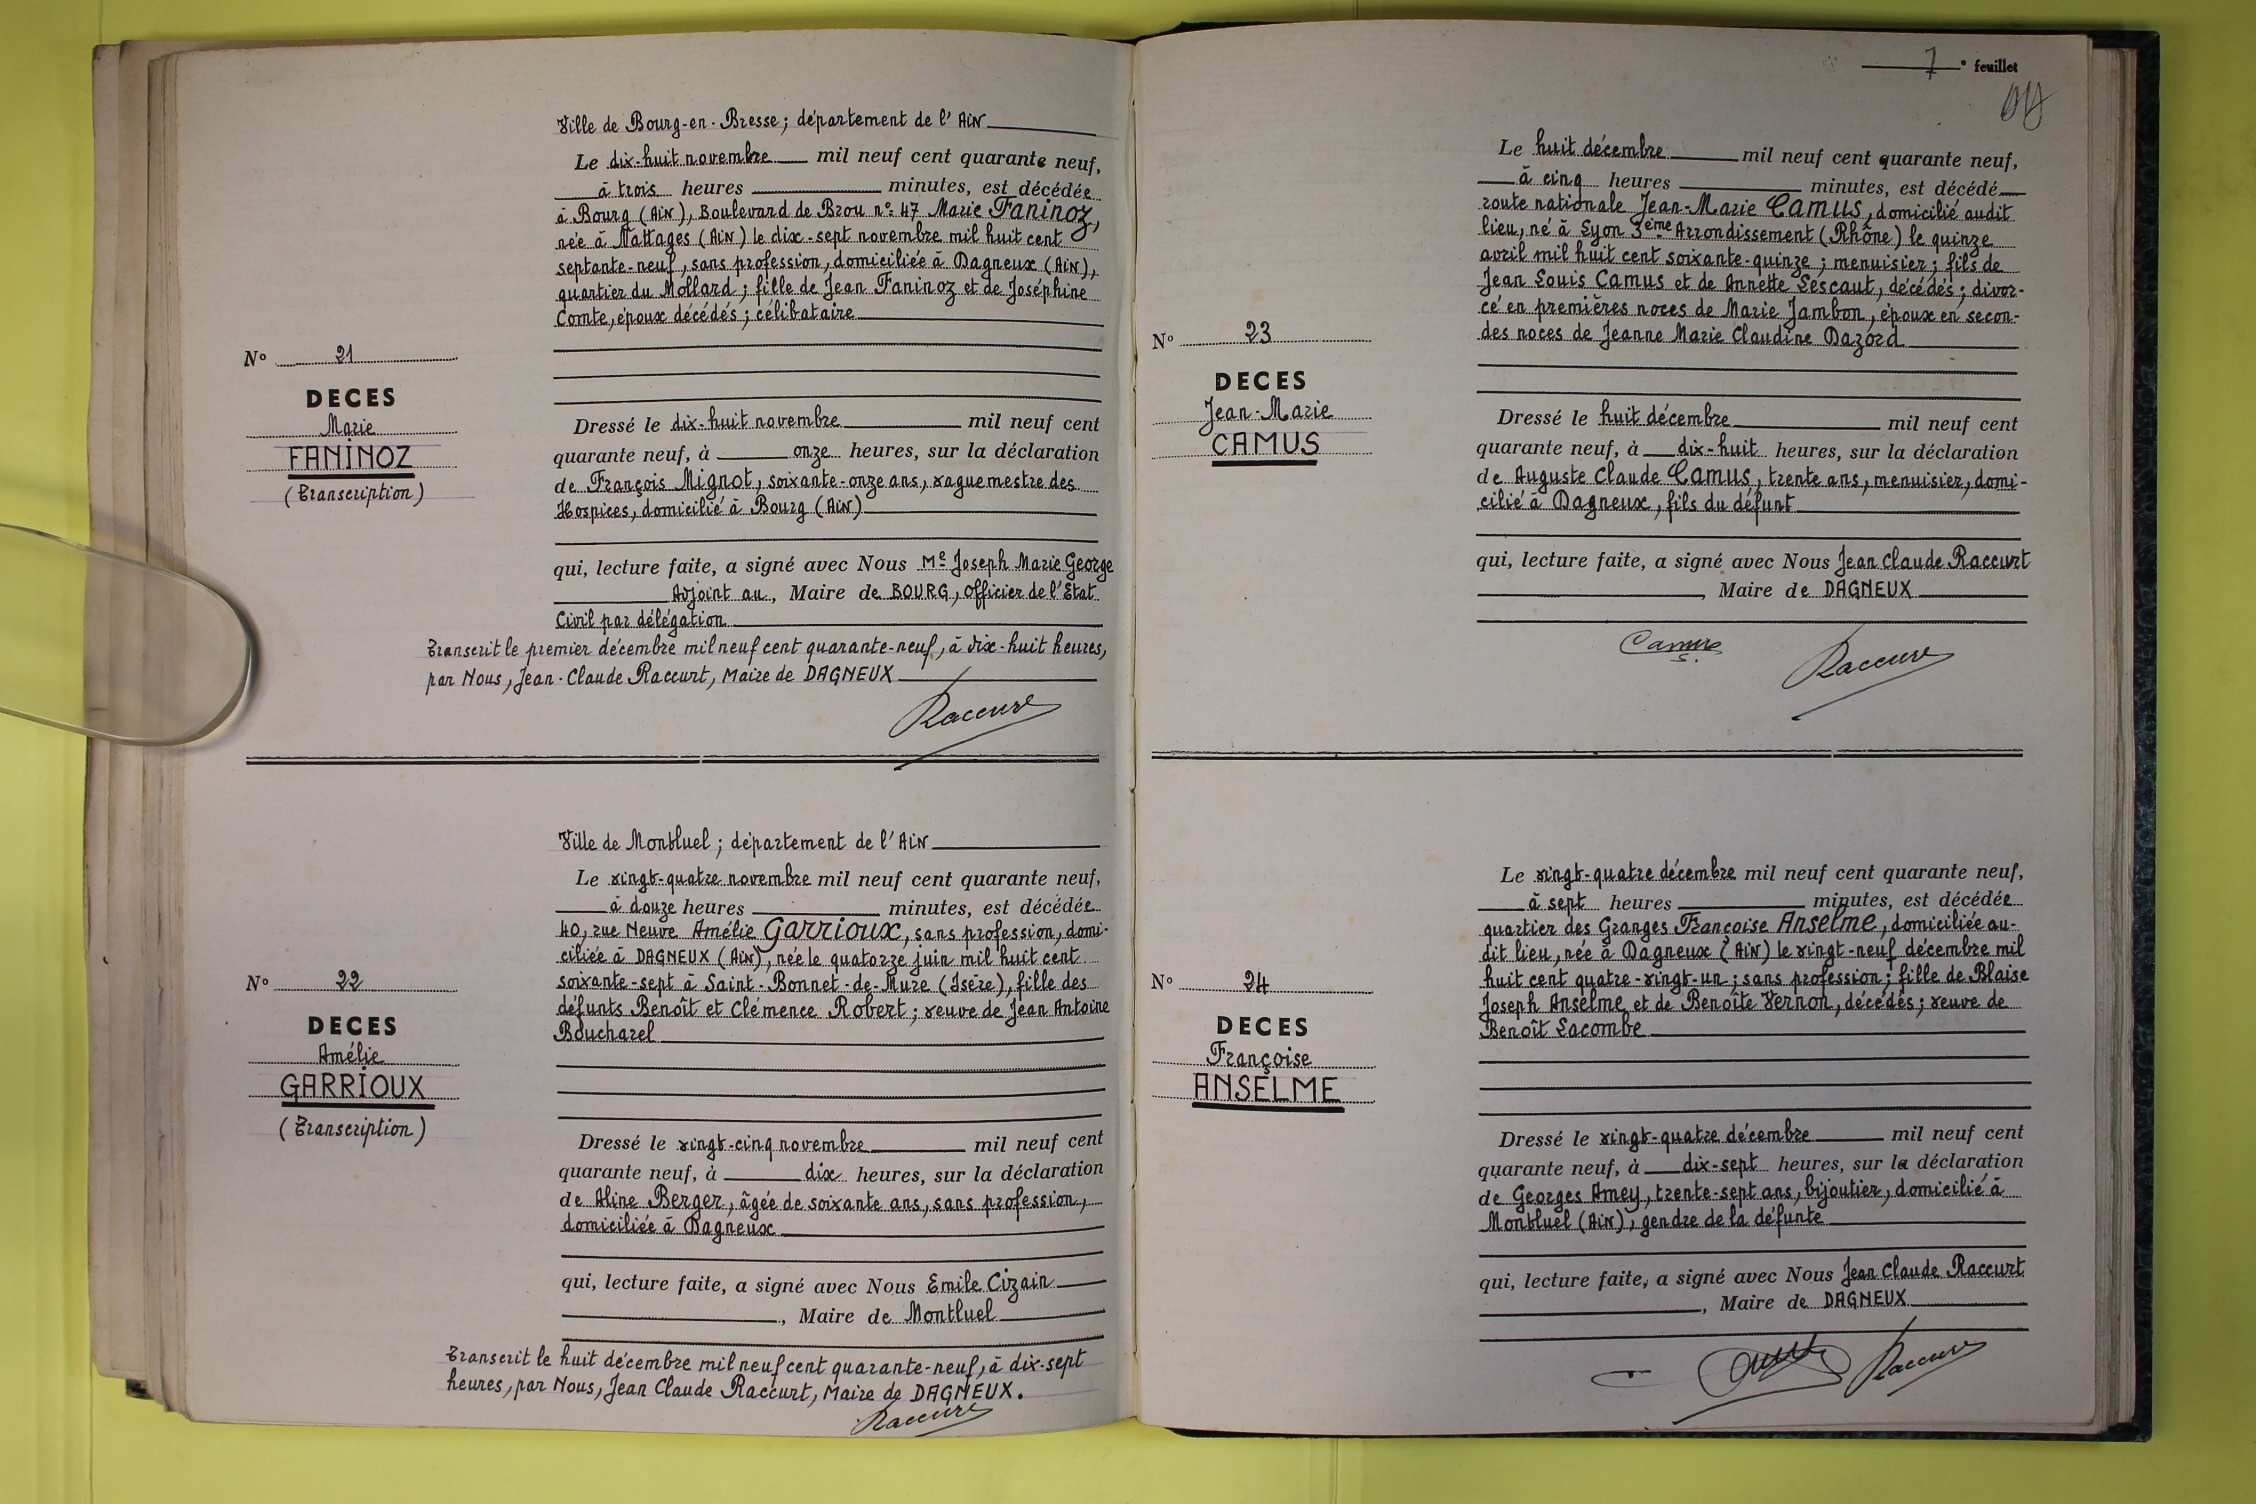 Ville de Bourg-en-Bresse; département de l'Ain
Le dix-huit novembre mil neuf cent quarante neuf,
à trois heures minutes, est décédée
à Bourg (Ain), Boulevard de Brou n°: 47 Marie Faninoz,
née à Nattages (Ain) le dix-sept novembre mil huit cent
septante-neuf, sans profession, domiciliée à Dagneux (Ain),
quartier du Mollard; fille de Jean Faninoz et de Joséphine
Comte, époux décédés; célibataire
N° 21
DECES
Marie
FANINOZ
(Transcription)
Dressé le dix-huit novembre mil neuf cent
quarante neuf, à onze heures, sur la déclaration
de François Mignot, soixante-onze ans, vaguemestre des
Hospices, domicilié à Bourg (Ain)
qui, lecture faite, a signé avec Nous Me Joseph Marie George
Adjoint au, Maire de BOURG, Officier de l'Etat
Civil par délégation
Transcrit le premier décembre mil neuf cent quarante-neuf, à dix-huit heures,
par Nous, Jean-Claude Raccurt, Maire de DAGNEUX
Raccurt
Ville de Montluel; département de l'Ain
Le vingt-quatre novembre mil neuf cent quarante neuf,
à douze heures minutes, est décédée
40, rue Neuve Amélie Garrioux, sans profession, domi-
ciliée à DAGNEUX (Ain), née le quatorze juin mil huit cent
soixante-sept à Saint-Bonnet-de-Mure (Isère), fille des
défunts Benoît et Clémence Robert; veuve de Jean Antoine
Boucharel
N° 22
DECES
Amélie
GARRIOUX
(Transcription)
Dressé le vingt-cinq novembre mil neuf cent
quarante neuf, à dix heures, sur la déclaration
de Aline Berger, âgée de soixante ans, sans profession,
domiciliée à Dagneux
qui, lecture faite, a signé avec Nous Emile Cizain
, Maire de Montluel
Transcrit le huit décembre mil neuf cent quarante-neuf, à dix-sept
heures, par Nous, Jean Claude Raccurt, Maire de DAGNEUX.
Raccurt
7e feuillet
Le huit décembre mil neuf cent quarante neuf,
à cinq heures minutes, est décédé
route nationale Jean-Marie Camus, domicilié audit
lieu, né à Lyon 3ème Arrondissement (Rhône) le quinze
avril mil huit cent soixante-quinze; menuisier; fils de
Jean Louis Camus et de Annette Lescaut, décédés; divor-
cé en premières noces de Marie Jambon, époux en secon-
des noces de Jeanne Marie Claudine Dazord
N° 23
DECES
Jean-Marie
CAMUS
Dressé le huit décembre mil neuf cent
quarante neuf, à dix-huit heures, sur la déclaration
de Auguste Claude Camus, trente ans, menuisier, domi-
cilié à Dagneux, fils du défunt
qui, lecture faite, a signé avec Nous Jean Claude Raccurt
, Maire de DAGNEUX
Camus
Raccurt
Le vingt-quatre décembre mil neuf cent quarante neuf,
à sept heures minutes, est décédée
quartier des Granges Françoise Anselme, domiciliée au-
dit lieu, née à Dagneux (Ain) le vingt-neuf décembre mil
huit cent quatre-vingt-un; sans profession; fille de Blaise
Joseph Anselme et de Benoîte Vernon, décédés; veuve de
Benoît Lacombe
N° 24
DECES
Françoise
ANSELME
Dressé le vingt-quatre décembre mil neuf cent
quarante neuf, à dix-sept heures, sur la déclaration
de Georges Amey, trente-sept ans, bijoutier, domicilié à
Montluel (Ain), gendre de la défunte
qui, lecture faite, a signé avec Nous Jean Claude Raccurt
, Maire de DAGNEUX
Raccurt